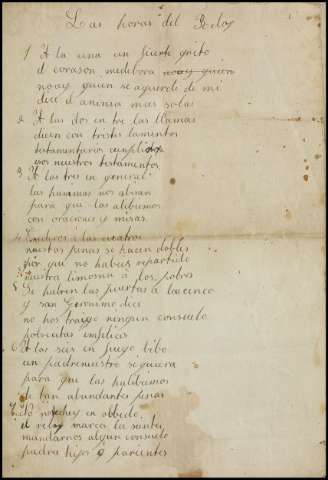 Las horas del Reloj
1 A la una un fuerte grito
el corason medibora noay quien
noay quien se aquerde de mi
dice el anima mas sola
2 A las dos en tre las llamas
dicen con tristes lamentos
testamentarios cumplid
vos nuestros testamentos
3 A las tres en general
las
para que las alibiemos
con oraciones y misas
4 a las cuatro
nuestras penas se hacen dobles
por que no habeis repartido
nuestra limosna a los pobres
5 Se habren las puertas a las cinco
y san Geronimo dice
no hos traygo ningun consuelo
pobrecitas infelices
6 A las seis en fuego bibo
un padrenuestro siquiera
para que las halibiemos
de tan abundantes penas
7 No
el reloj marca la santa
mandarnos algun consuelo
padre hijos o parientes